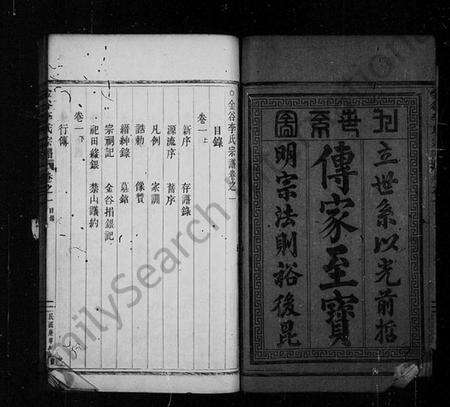 立世系以光前招
傳家至寶
明宗法則裕後昆
金谷李氏宗譜卷之一
目錄
卷一上
新序 存譜錄
源流序 舊序
凡例 家訓
誥勅 像贊
縉紳錄 墓銘
宗祠記 金谷捐銀記
祀田條銀 禁山議約
卷一下
行傳
FamilySearch